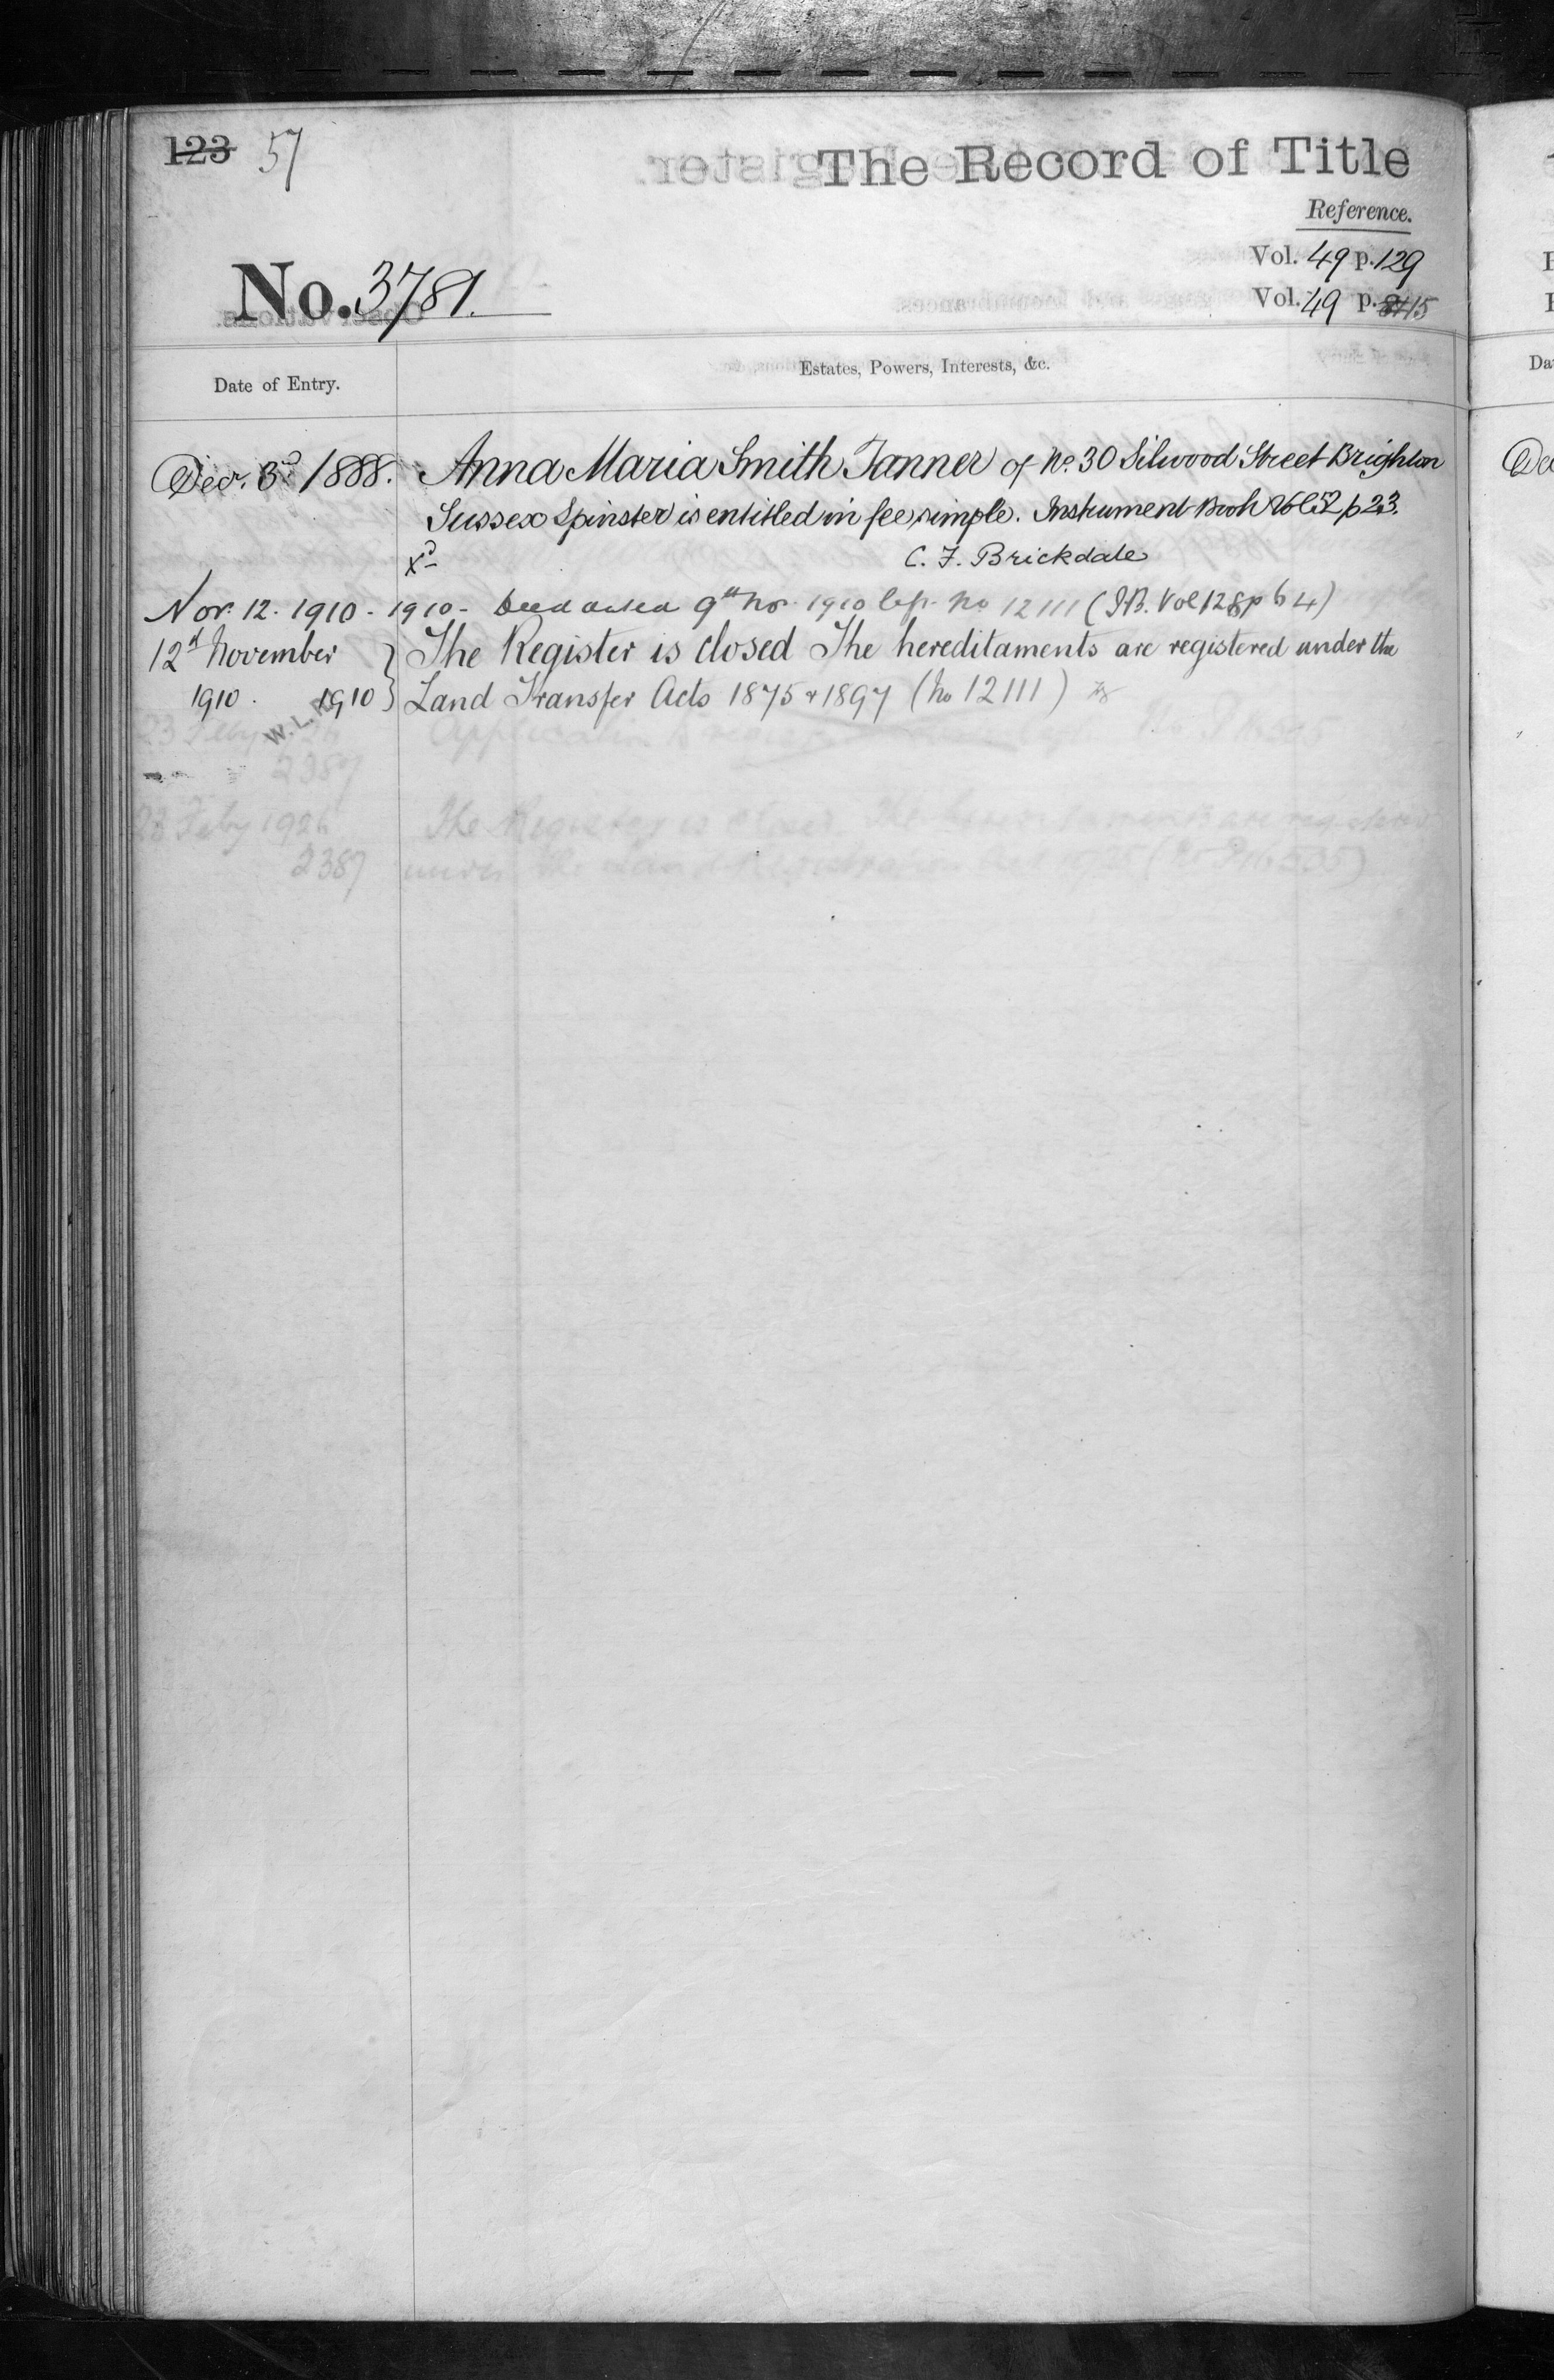 123 57
The Record of Title
Reference.
Vol. 49 p. 129
No. 3781.
Vol. 49 p. 15
Date of Entry.
Estates, Powers, Interests, &c.
Decr. 3rd 1888. Anna Maria Smith Tanner of No. 30 Silwood Street Brighton
Sussex Spinster is entitled in fee simple. Instrument Book Vol 52 p 23.
Xd
C. F. Brickdale
Nov. 12. 1910 - 1910 - Deed dated 9th Nov. 1910 No 12111 (I.B. Vol 128 p 64)
12th November } The Register is closed The hereditaments are registered under the
1910. 1910 } Land Transfer Acts 1875 & 1897 (No 12111)
W.L.R.
23 Feby 1926 Application
2387
23 Feby 1926 The Register is closed The hereditaments are registered
2387 under the Land Registration Act 1925
Da
Dec